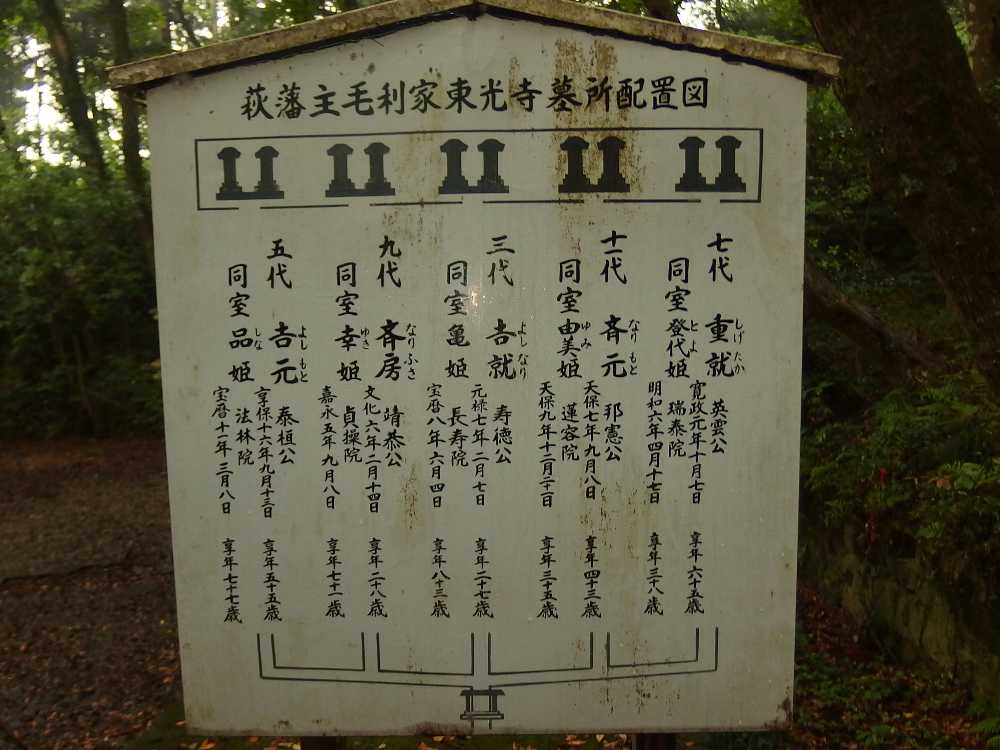 萩藩主毛利家東光寺墓所配置図
七代 重就 しげ たか
英雲公
寛政元年十月七日
享年六十五歳
同室 登代姫 とよ
瑞泰院
明和六年四月十七日
享年三十八歳
十一代 斉元 なり もと
邦憲公
天保七年九月八日
享年四十三歳
同室 由美姫 ゆみ
蓮容院
享年三十五歳
三代 吉就 よし なり
寿徳公
元禄七年二月七日
享年二十七歳
同室 亀姫
長寿院
宝暦八年六月四日
享年八十三歳
九代 斉房 なり ふさ
靖恭公
文化六年二月十四日
享年二十八歳
同室 幸姫 ゆき
貞操院
嘉永五年九月八日
享年七十一歳
五代 吉元 よし もと
泰桓公
享保十六年九月十三日
享年五十五歳
同室 品姫 しな
法林院
宝暦十一年三月八日
享年七十七歳